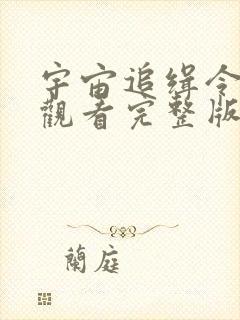 宇宙追缉令
觀看完整版
蘭庭